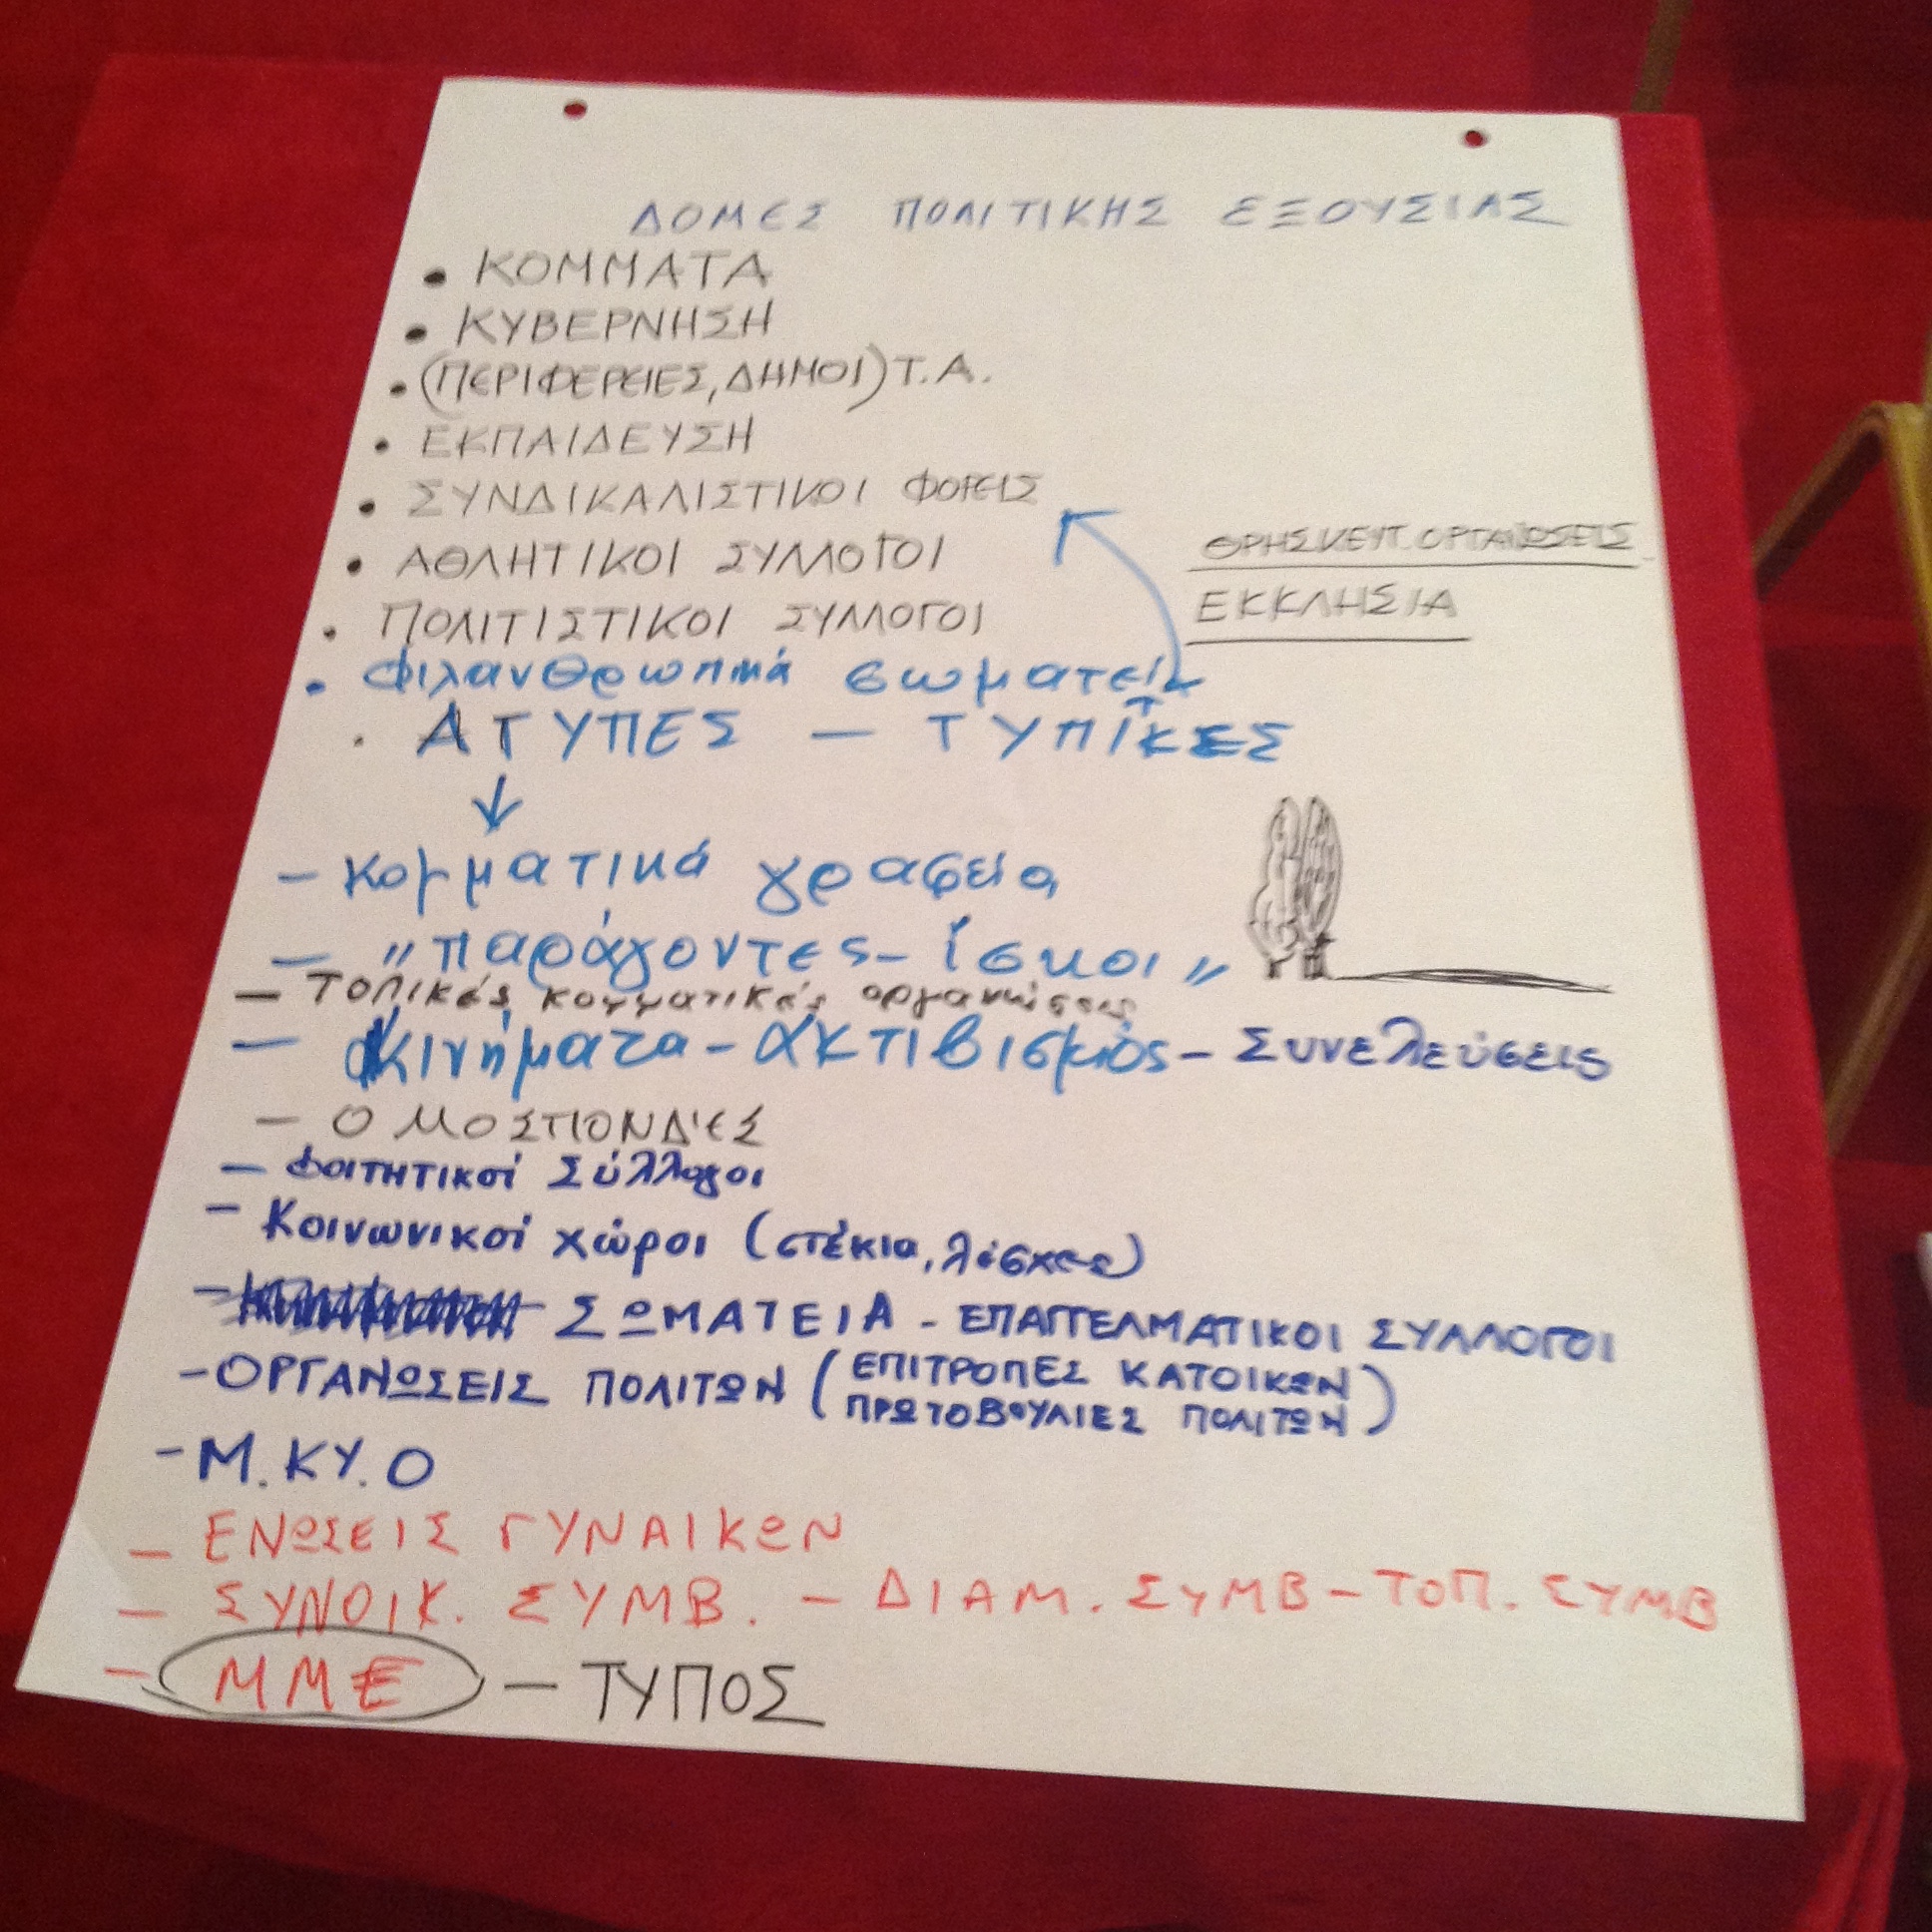 ΔΟΜΕΣ ΠΟΛΙΤΙΚΗΣ ΕΞΟΥΣΙΑΣ
• ΚΟΜΜΑΤΑ
• ΚΥΒΕΡΝΗΣΗ
• (ΠΕΡΙΦΕΡΕΙΕΣ, ΔΗΜΟΙ) Τ.Α.
• ΕΚΠΑΙΔΕΥΣΗ
• ΣΥΝΔΙΚΑΛΙΣΤΙΚΟΙ ΦΟΡΕΙΣ
ΘΡΗΣΚΕΥΤ. ΟΡΓΑΝΩΣΕΙΣ
• ΑΘΛΗΤΙΚΟΙ ΣΥΛΛΟΓΟΙ
ΕΚΚΛΗΣΙΑ
• ΠΟΛΙΤΙΣΤΙΚΟΙ ΣΥΛΛΟΓΟΙ
• Φιλανθρωπικά σωματεία
• ΑΤΥΠΕΣ — ΤΥΠΙΚΕΣ
↓
— Κομματικά γραφεία
— "παράγοντες - ίσκιοι"
— Τοπικές κομματικές οργανώσεις
— Κινήματα - ακτιβισμός - Συνελεύσεις
— ΟΜΟΣΠΟΝΔΙΕΣ
— Φοιτητικοί Σύλλογοι
— Κοινωνικοί χώροι (στέκια, λέσχες)
— ΣΩΜΑΤΕΙΑ - ΕΠΑΓΓΕΛΜΑΤΙΚΟΙ ΣΥΛΛΟΓΟΙ
- ΟΡΓΑΝΩΣΕΙΣ ΠΟΛΙΤΩΝ (ΕΠΙΤΡΟΠΕΣ ΚΑΤΟΙΚΩΝ
ΠΡΩΤΟΒΟΥΛΙΕΣ ΠΟΛΙΤΩΝ)
- Μ.ΚΥ.Ο
— ΕΝΩΣΕΙΣ ΓΥΝΑΙΚΩΝ
— ΣΥΝΟΙΚ. ΣΥΜΒ. - ΔΙΑΜ. ΣΥΜΒ - ΤΟΠ. ΣΥΜΒ
— ΜΜΕ — ΤΥΠΟΣ